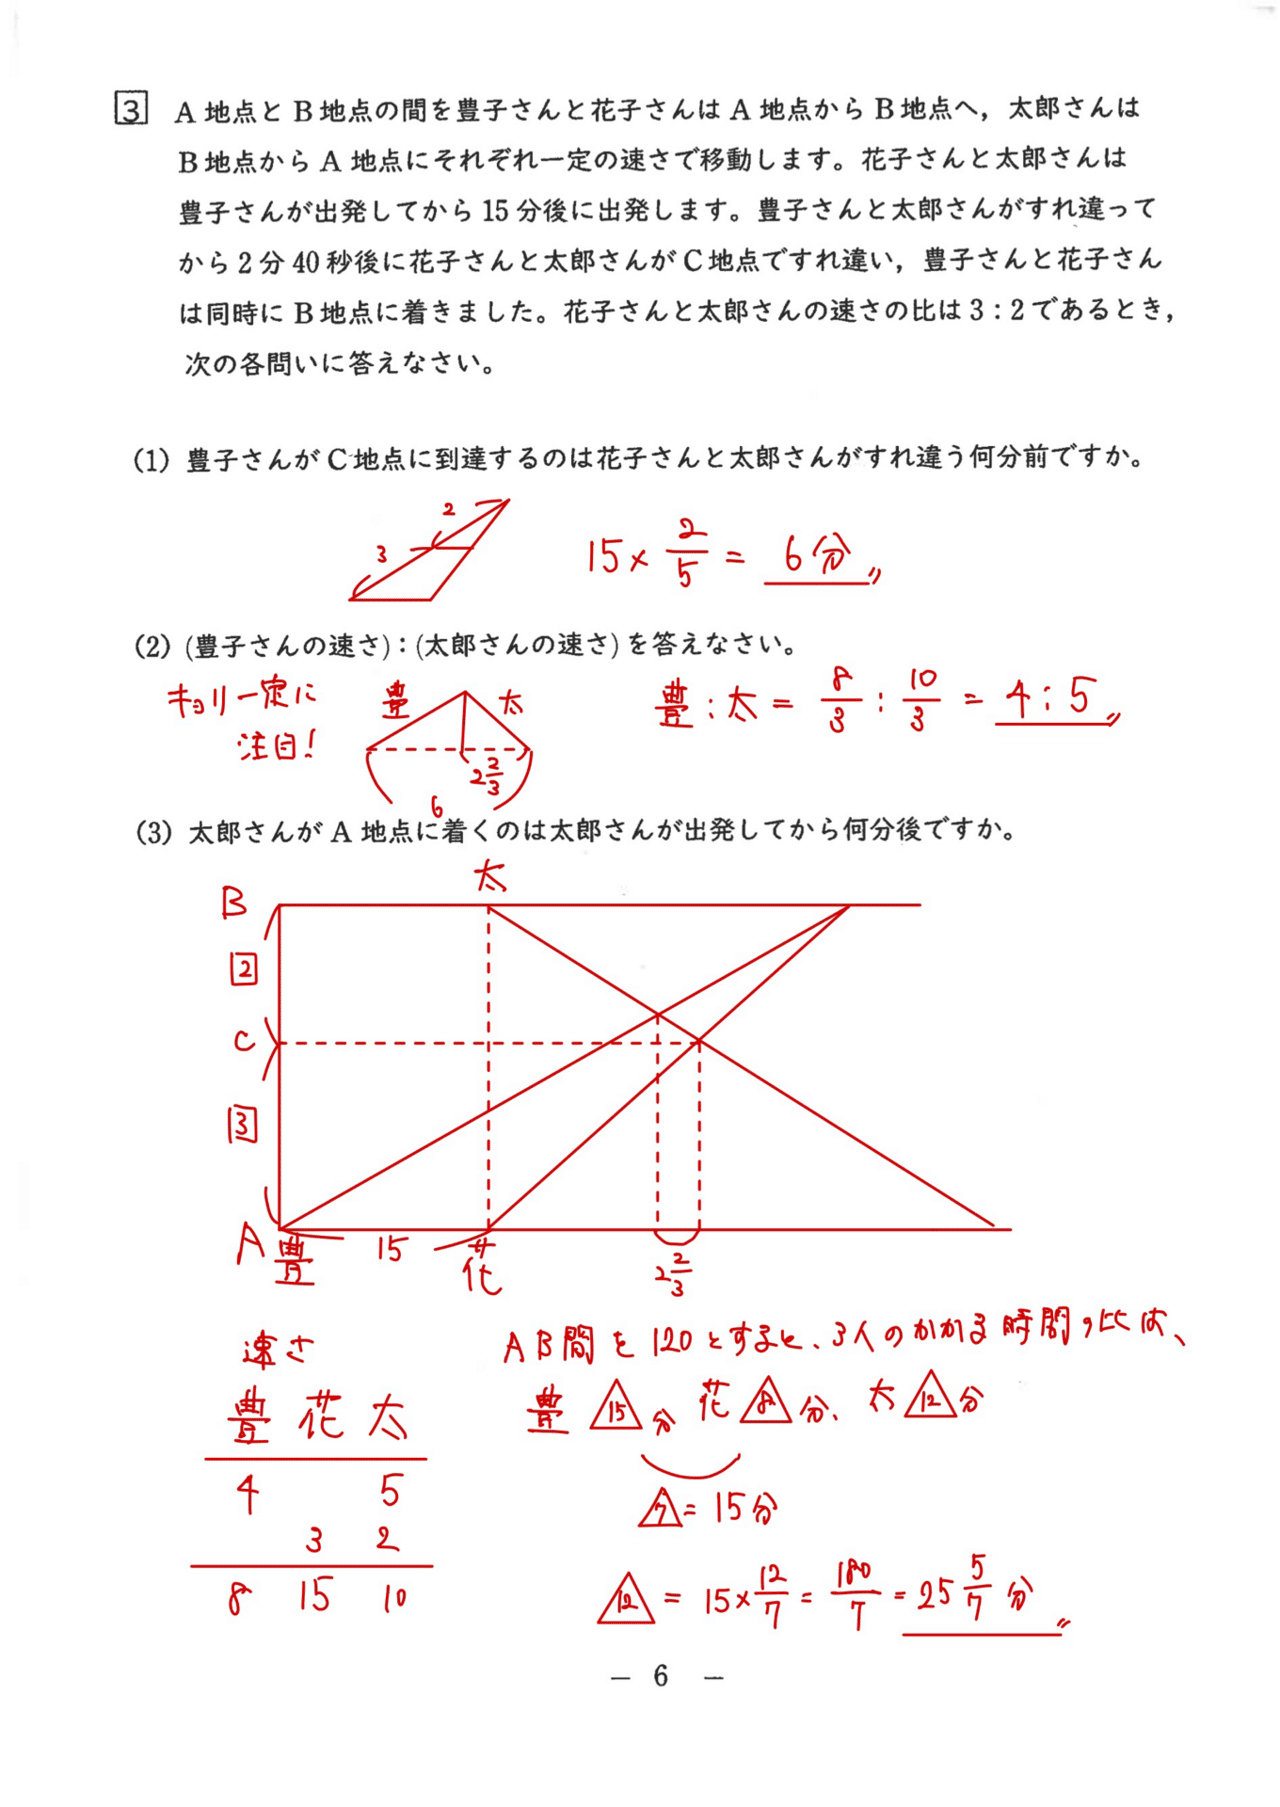 3 A地点とB地点の間を豊子さんと花子さんはA地点からB地点へ，太郎さんは
B地点からA地点にそれぞれ一定の速さで移動します。花子さんと太郎さんは
豊子さんが出発してから15分後に出発します。豊子さんと太郎さんがすれ違って
から2分40秒後に花子さんと太郎さんがC地点ですれ違い，豊子さんと花子さん
は同時にB地点に着きました。花子さんと太郎さんの速さの比は3：2であるとき，
次の各問いに答えなさい。
(1) 豊子さんがC地点に到達するのは花子さんと太郎さんがすれ違う何分前ですか。
2
3
15×2/5＝6分
(2) (豊子さんの速さ)：(太郎さんの速さ)を答えなさい。
キョリ一定に
注目！
豊 太
2 2/3
6
豊：太＝8/3：10/3＝4：5
(3) 太郎さんがA地点に着くのは太郎さんが出発してから何分後ですか。
太
B
2
C
3
A 豊 15 花 2 2/3
速さ
豊 花 太
4 5
3 2
8 15 10
AB間を120とすると、3人のかかる時間の比は、
豊 15分 花 8分、太 12分
7＝15分
12＝15×12/7＝180/7＝25 5/7分
― 6 ―